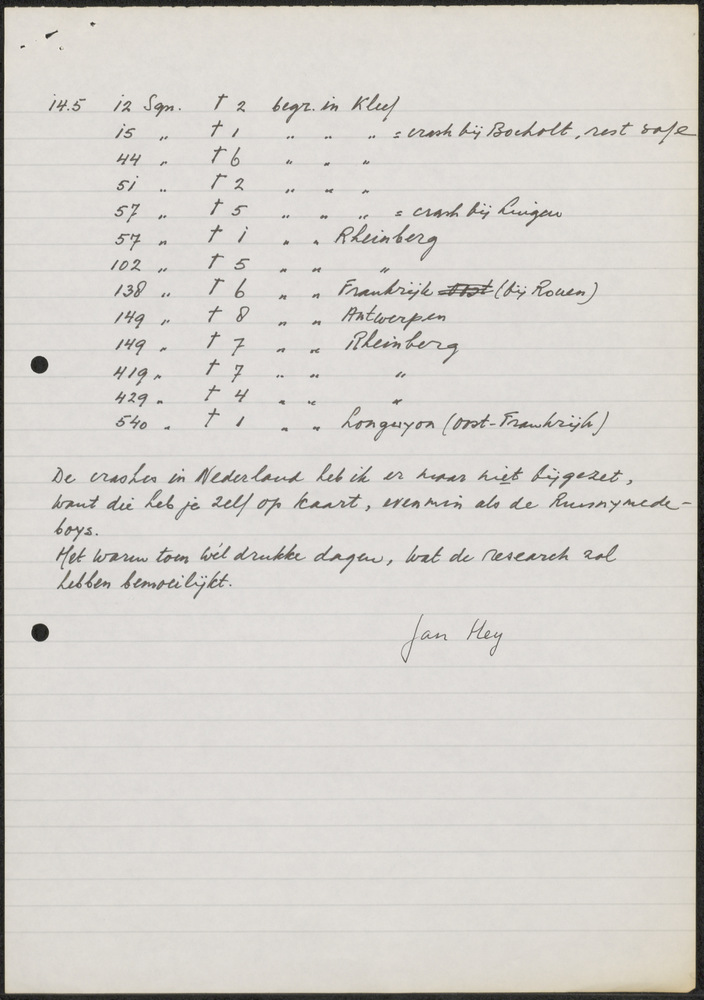 14.5 12 Sqn. † 2 begr. in Kleef
15 " † 1 " " " = crash bij Bocholt, rest safe
44 " † 6 " " "
51 " † 2 " " "
57 " † 5 " " " = crash bij Lingen
57 " † 1 " " Rheinberg
102 " † 5 " " "
138 " † 6 " " Frankrijk (bij Rouen)
149 " † 8 " " Antwerpen
149 " † 7 " " Rheinberg
419 " † 7 " " "
429 " † 4 " " "
540 " † 1 " " Longuyon (Oost-Frankrijk)
De crashes in Nederland heb ik er maar niet bijgezet,
want die heb je zelf op kaart, evenmin als de Runnymede-
boys.
Het waren toen wél drukke dagen, wat de research zal
hebben bemoeilijkt.
Jan Hey